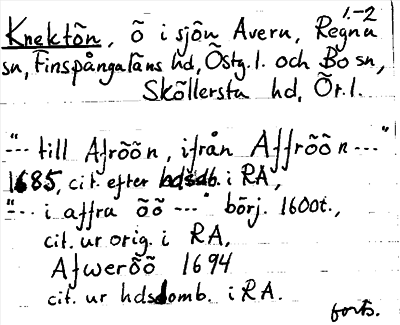 1.-2
Knektön, ö i sjön Avern, Regna
sn, Finspångaläns hd, Östg.l. och Bo sn,
Sköllersta hd, Ör.l.
"--- till Afröön, ifrån Affröön ---"
1685, cit. efter hdsdb. i RA,
"--- i affra öö ---" börj. 1600t.,
cit. ur orig. i RA,
Afweröö 1694
cit. ur hdsdomb. i RA.
forts.